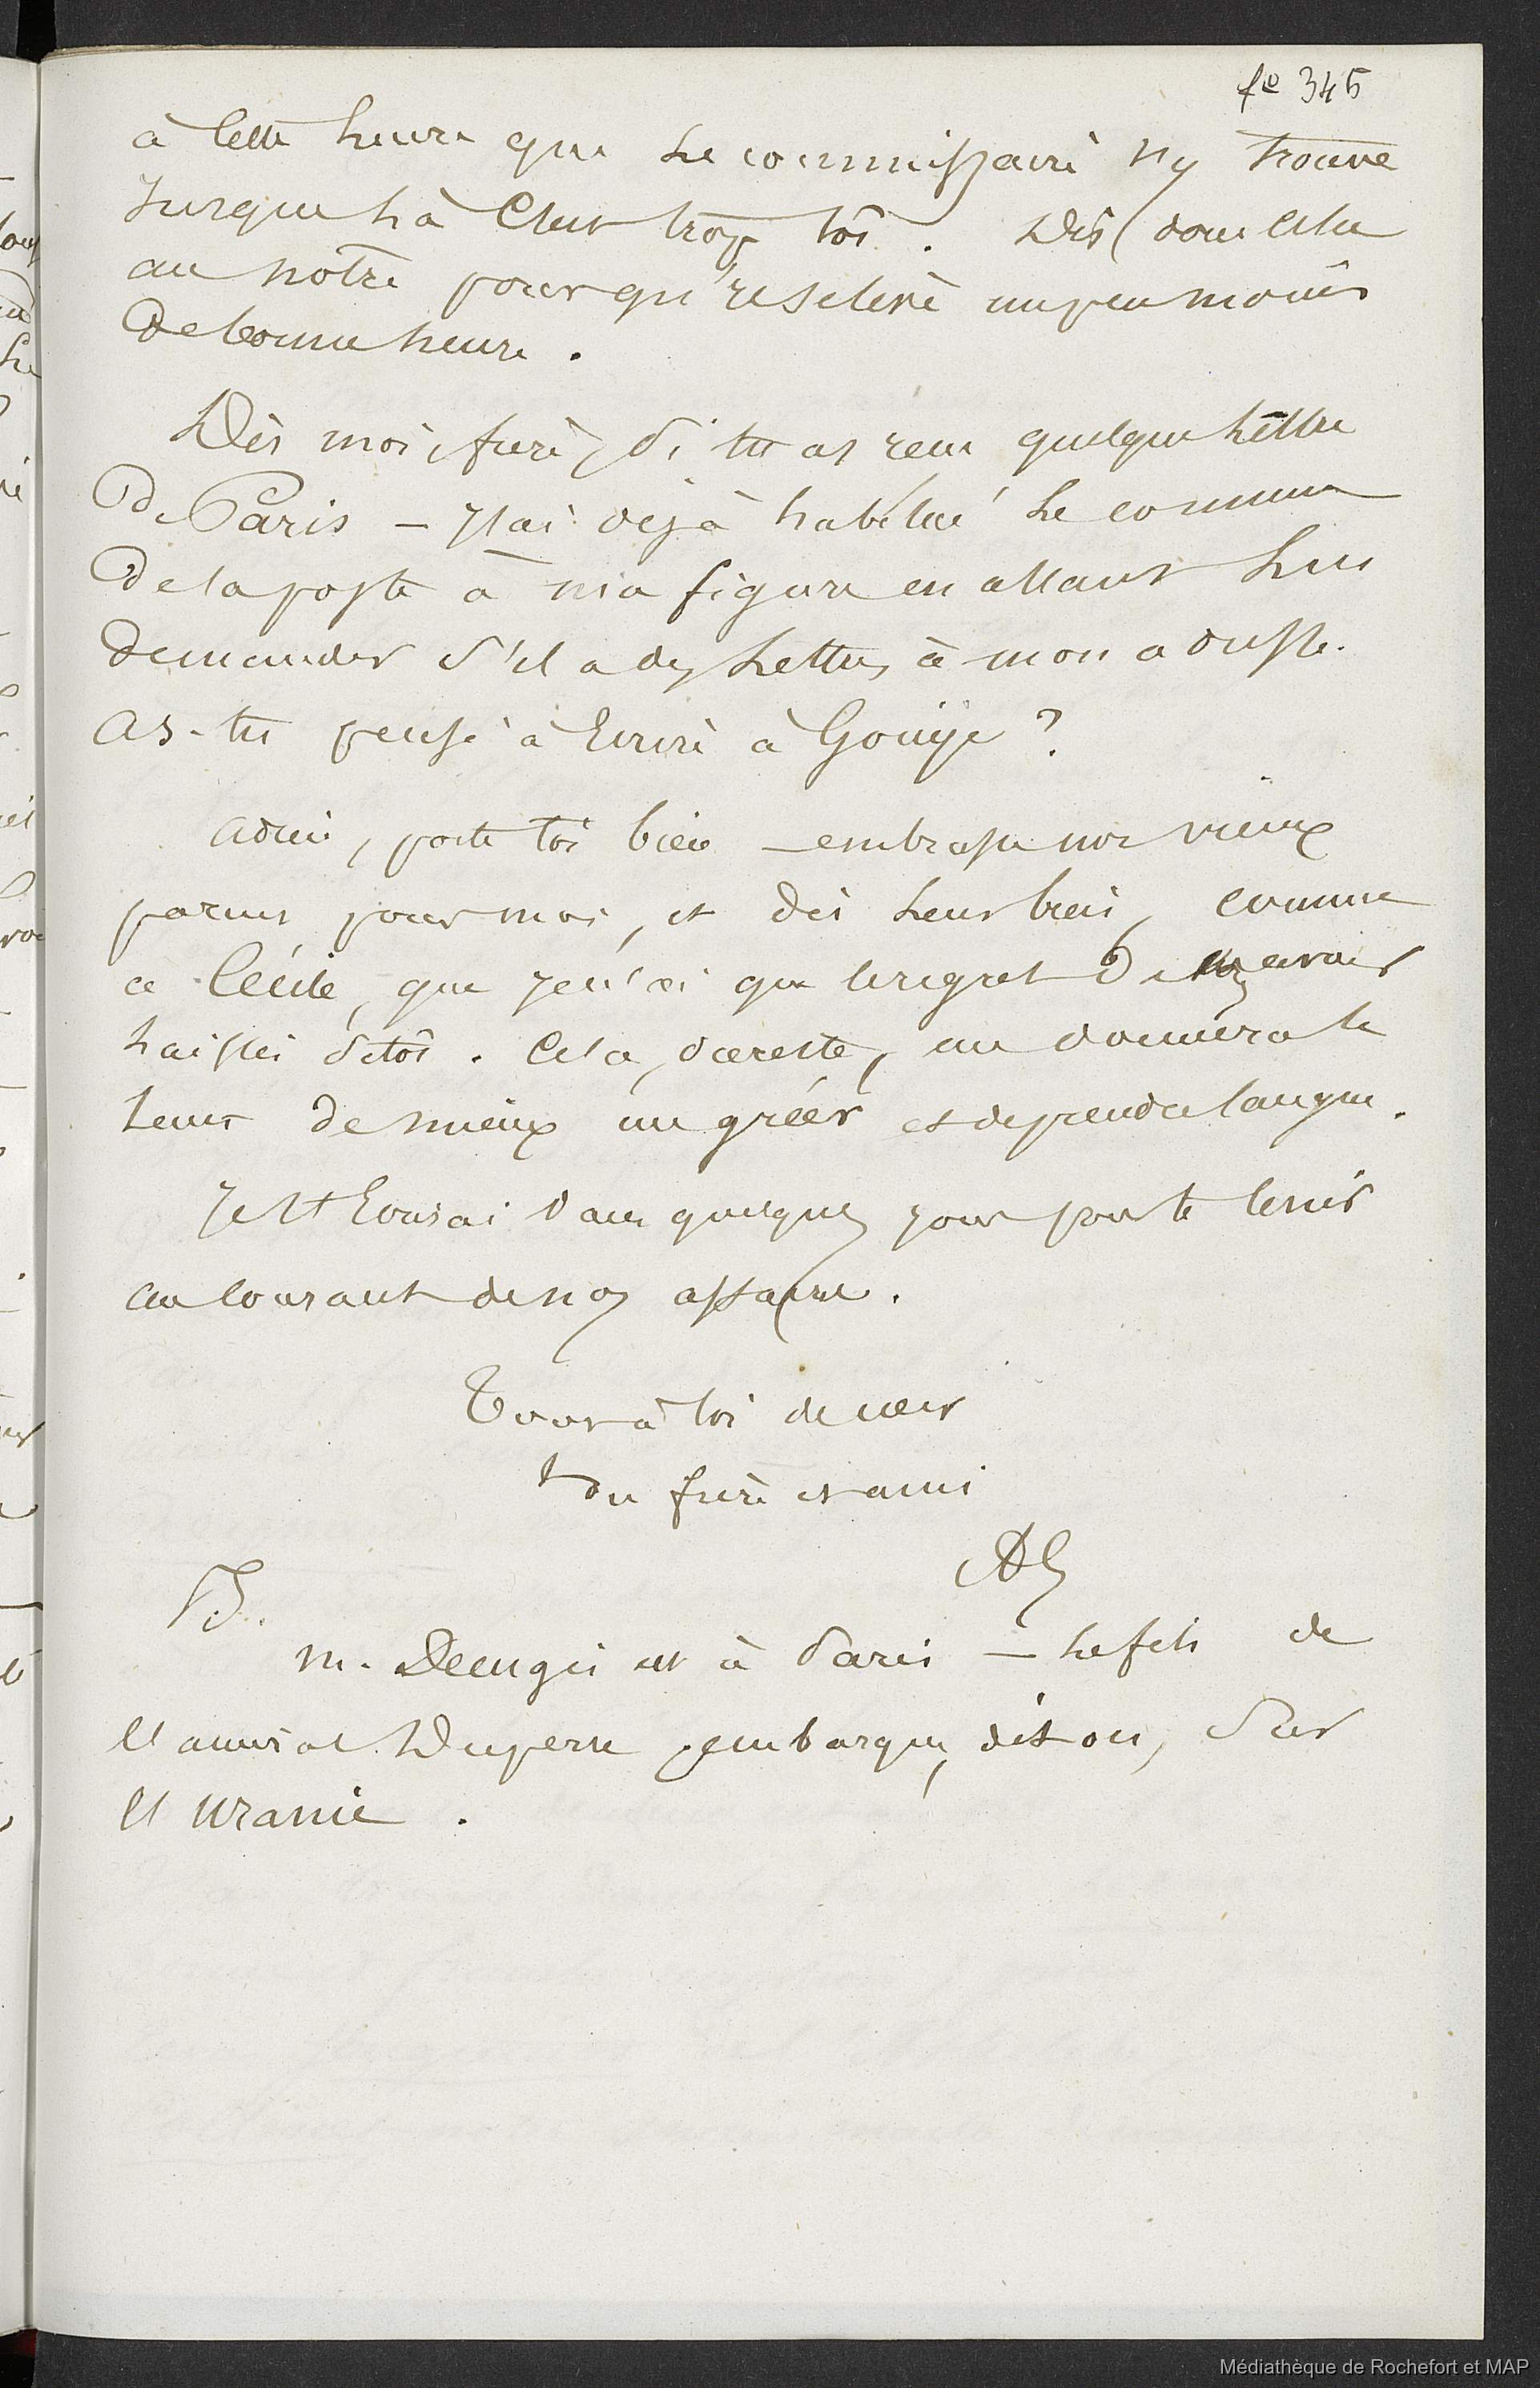 fo 345
à cette heure que le commissaire n'y trouve
jusque là c'est trop tôt. Dis donc cela
au nôtre pour qu'il se lève un peu moins
de bonne heure.
Dis moi, frère, si tu as reçu quelque lettre
de Paris – J'ai déjà habitué le commis
de la poste à ma figure en allant lui
demander s'il a des lettres à mon adresse.
As-tu pensé à écrire à Gouÿe ?
Adieu, porte toi bien – embrasse nos vieux
parens pour moi, et dis leur bien, comme
à Cécile, que je n'ai que le regret de les avoir
laissés si tôt. Cela, du reste, me donnera le
tems de mieux me gréer et de prendre langue.
Je t'écrirai dans quelques jours pour te tenir
au courant de nos affaires.
Tout à toi de cœur
ton frère et ami
PS.
M. est à Paris – le fils de
l'amiral Duperré embarque, dit on, sur
l'Uranie.
Médiathèque de Rochefort et MAP